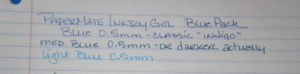 PAPERMATE INKJOY GEL BLUE PACK
BLUE 0.5mm - CLASSIC "INDIGO"
MED. BLUE 0.5mm - OR DARKER ACTUALLY
LIGHT BLUE 0.5mm